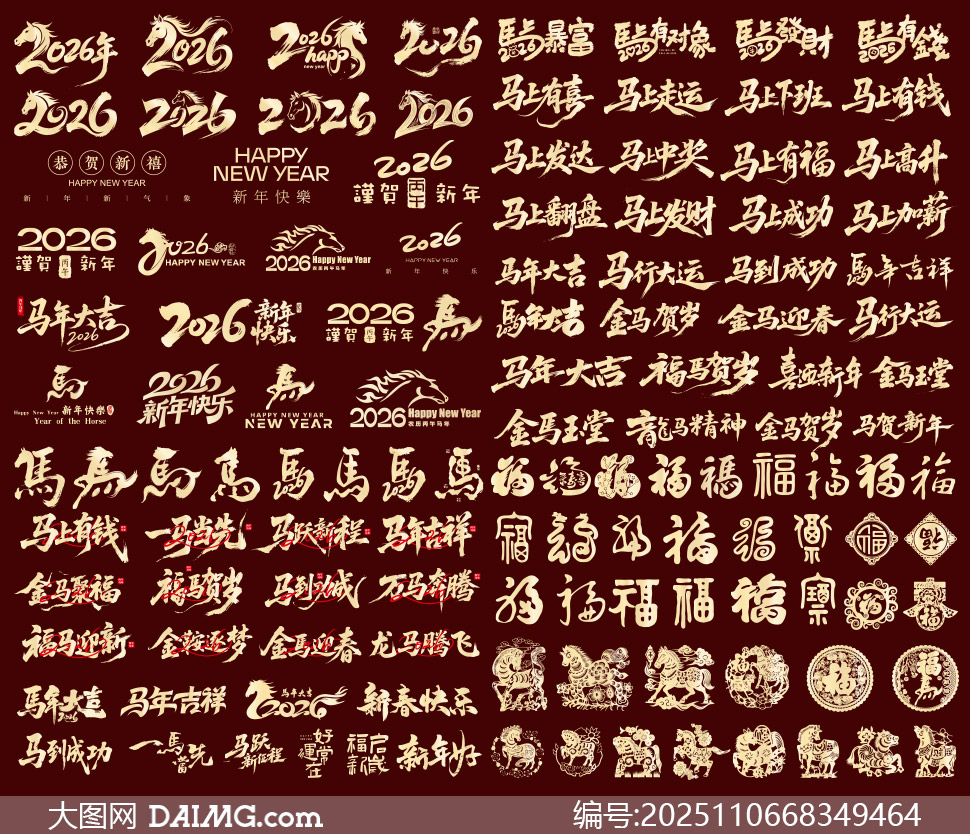 2026年 2026 2026 happy new year 2026
2026 2026 2026 2026
恭贺新禧
HAPPY NEW YEAR
新 | 年 | 新 | 气 | 象
HAPPY
NEW YEAR
新年快樂
2026
謹賀 丙午 新年
2026
謹賀 丙午 新年
2026
HAPPY NEW YEAR
2026 Happy New Year
农历丙午马年
2026
HAPPY NEW YEAR
新 年 快 乐
马年大吉
2026
2026 新年快乐
2026
謹賀 丙午 新年
馬
馬
Happy New Year 新年快樂
Year of the Horse
2026
新年快乐
馬
HAPPY NEW YEAR
NEW YEAR
2026 Happy New Year
农历丙午马年
馬 馬 馬 馬 馬 馬 馬 馬
马上有钱 一马当先 马跃新程 马年吉祥
金马聚福 福马贺岁 马到功成 万马奔腾
福马迎新 金鞍逐梦 金马迎春 龙马腾飞
馬年大吉 2026 马年吉祥 马年大吉 2026 新春快乐
马到成功 一馬當先 马跃新征程 好運常在 福启新岁 新年好
馬上暴富 2026 馬上有对象 2026 馬上發財 2026 馬上有錢 2026
马上有喜 马上走运 马上下班 马上有钱
马上发达 马上中奖 马上有福 马上高升
马上翻盘 马上发财 马上成功 马上加薪
马年大吉 马行大运 马到成功 馬年吉祥
馬年大吉 金马贺岁 金马迎春 马行大运
马年大吉 福马贺岁 喜迎新年 金马玉堂
金馬玉堂 龍马精神 金马贺岁 马贺新年
福 福 福 福 福 福 福 福 福
福 福 福 福 福 福 福 福
福 福 福 福 福 福 福 福
福 福
大图网 DAIMG.com 编号:2025110668349464